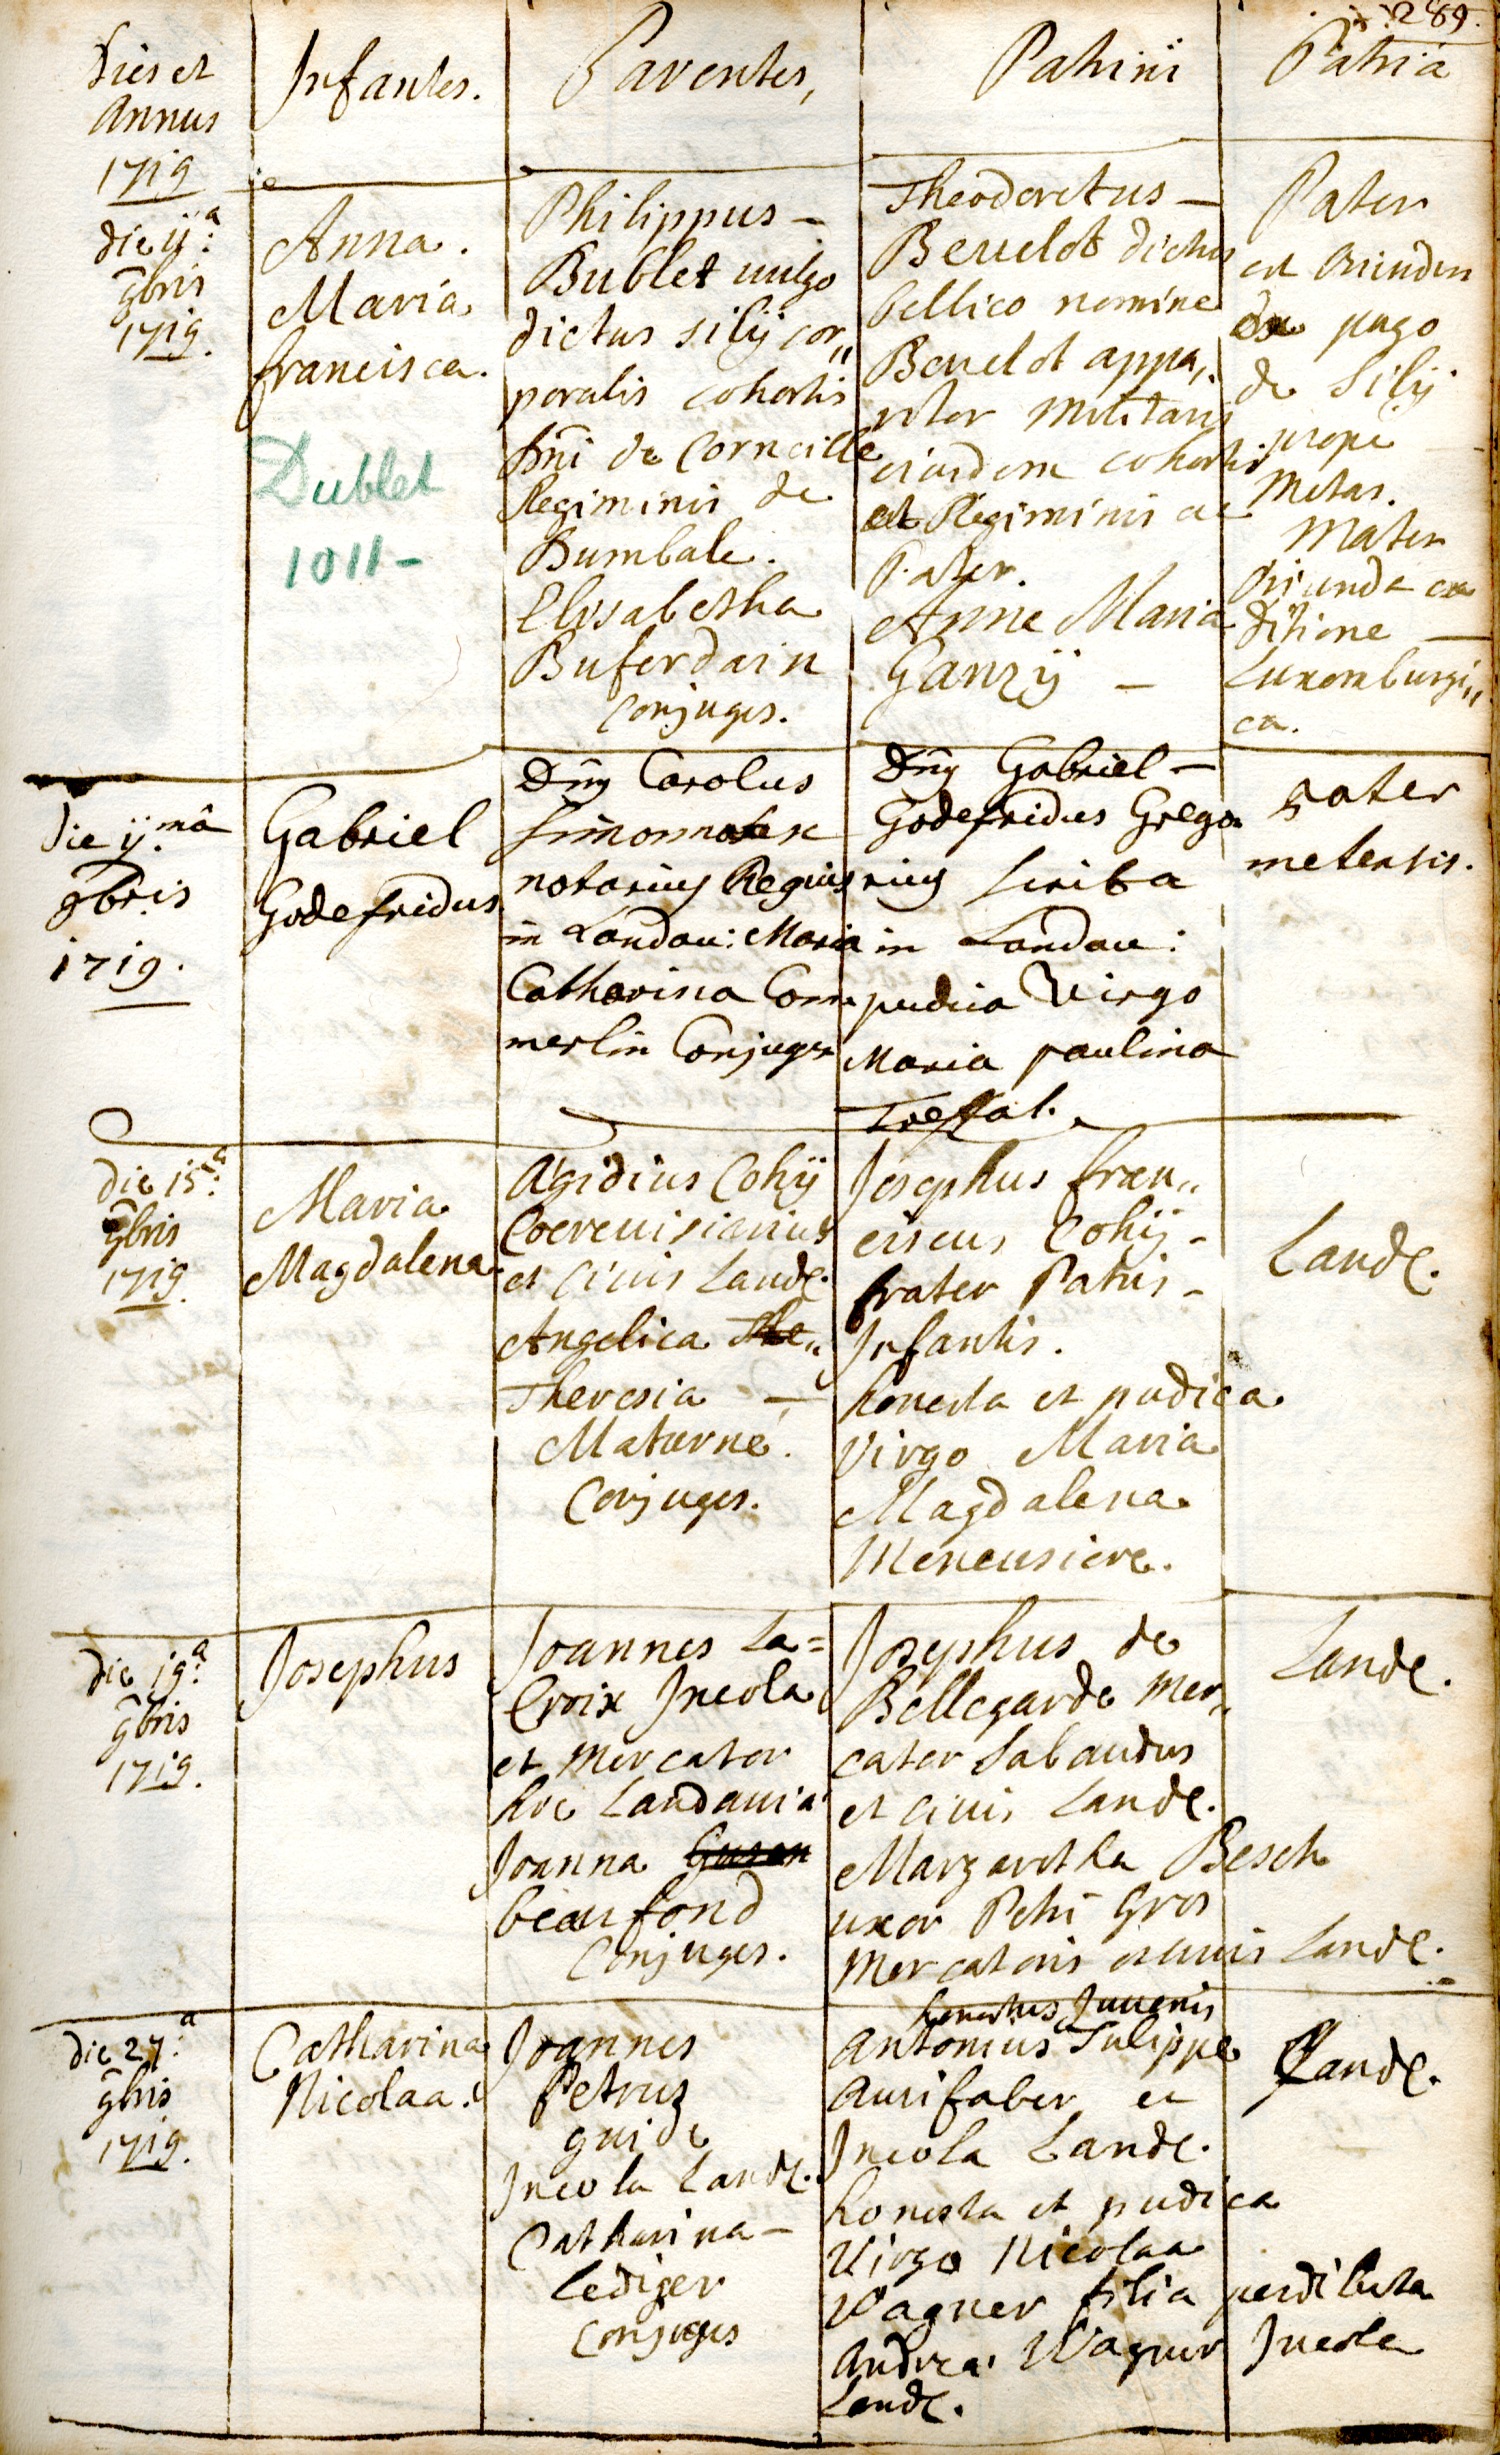 289.
Dies et
Annus
1719
Infantes.
Parentes,
Patrini
Patria
die ij.a
9bris
1719.
Anna.
Maria
francisca.
Dublet
1011-
Philippus -
Bublet uulgo
dictus silij cor„
poralis cohortis
dni de Corneille
Regiminis de
Bumbale.
Elisabetha
Buferdain
Conjuges.
Theodoretus -
Beruelot dictus
bellico nomine
Beruelot appa„
ritor militaris
eiusdem cohortis
et Regiminis ac
Pater.
Anne Maria
Ganzij -
Pater
est oriundus
ex pago
de Silij
prope
Metas.
Mater
Oriunda ex
ditione -
Luxemburgi„
ca.
die ij.mâ
9bris
1719.
Gabriel
Godefridus
Dnỹ Carolus
notarius Regius
in Landau: Maria
Catharina Com
merlin Conjuges
Dnỹ Gabriel -
Godefridus Grego
rius scriba
in Landau:
pudica Virgo
Maria paulina
Treffal.
pater
metensis.
die 15.a
9bris
1719.
Maria
Magdalena
Ægidius Cohij
Coereuisiarius
et Ciuis Landæ.
Angelica The„
Theresia -
Materne.
Conjuges.
Josephus fran„
ciscus Cohij -
frater Patris -
Infantis.
honesta et pudica
Virgo Maria
Magdalena
Meneusiere.
Landæ.
die 19.a
9bris
1719.
Josephus
Joannes La=
Croix Incola
et Mercator
hic Landauiæ
Joanna
beaufond
Conjuges.
Josephus de
Bellegarde Mer„
cator Sabaudus
et ciuis Landæ.
Margaretha Besch
uxor Petri Gros
Mercatoris et ciuis Landæ.
Landæ.
die 27.a
9bris
1719.
Catharina
Nicolaa.
Joannes
Petrus
guide
Incola Landæ.
Catharina -
Lediger
Conjuges
honestus Juuenis
Antonius Tulippe
Aurifaber et
Incola Landæ.
honesta et pudica
Virgo Nicolaa
Wagner filia
Andreæ Wagner Incolæ
Landæ.
Landæ.